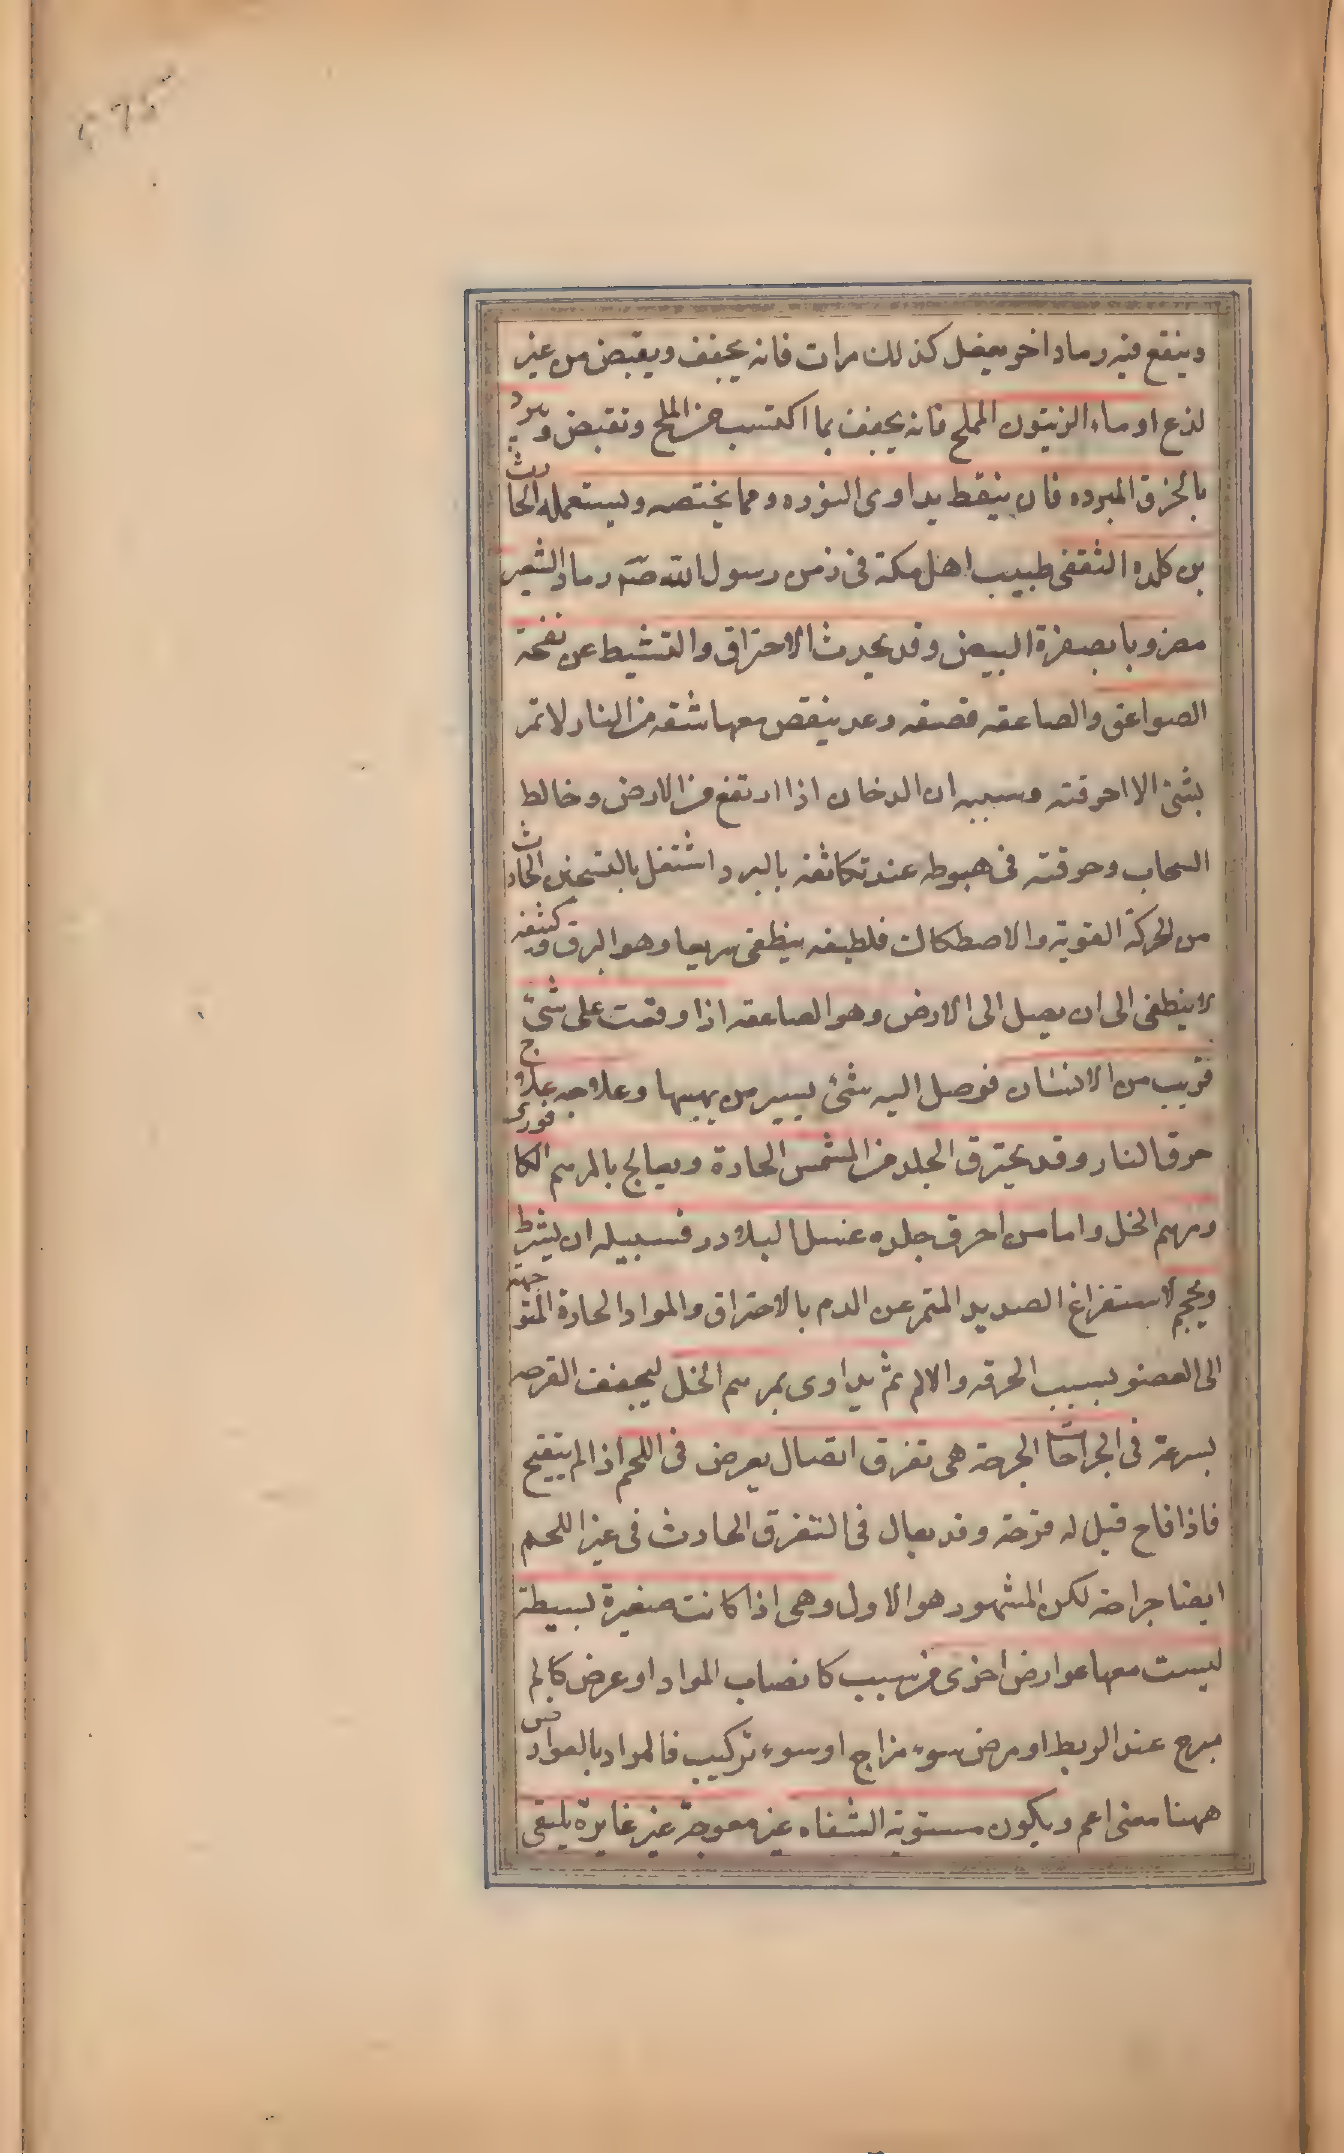 وينقع فيه رماد اخر يفعل كذلك مرات فانه يجفف ويقبض من غير
لذع او ماء الزيتون المملح فانه يجفف بما اكتسب من الملح وتقبض ويبرد
بالخرق المبرده فان ينقط يداوى النوره ومما يختصه ويستعمله الحارث
بن كلده الثقفى طبيب اهل مكة فى زمن رسول الله صم رماد الشعير
مضروبا بصفرة البيض وقد يحدث الاحتراق والتشيط عن نفحة
الصواعق والصاعقه قصفه رعد ينقض معها شقه من النار لا تمر
بشئ الا احرقته وسببه ان الدخان اذا ارتفع من الارض وخالط
السحاب وحرقته فى هبوطه عند تكاثفه بالبرد اشتعل بالتسخين الحادث
من الحركة القوية والاصطكاك فلطيفه ينطفى سريعا وهو البرق وكثيفه
لا ينطفى الى ان يصل الى الارض وهو الصاعقه اذا وقعت على شئ
قريب من الانسان فوصل اليه شئ يسير من لهيبها وعلاجه علاج
حرق النار وقد يحترق الجلد من الشمس الحادة ويعالج بالمرهم الكافورى
ومرهم الخل واما من احرق جلده عسل البلادر فسبيله ان يشرط
ويحجم لاستفراغ الصديد المتمر عن الدم بالاحتراق والمواد الحادة المتوجهة
الى العضو بسبب الحرقه والالم ثم يداوى بمرهم الخل ليجفف القرحه
بسرعة فى الجراحات الجرحة هى تفرق اتصال يعرض فى اللحم اذا لم يتقيح
فاذا قاح قيل له قرحة وقد يقال فى التفرق الحادث فى غير اللحم
ايضا جراحة لكن المشهور هو الاول وهى اذا كانت صغيرة بسيطة
ليست معها عوارض اخرى من سبب كانصاب المواد او عرض كالم
مبرح عند الربط او مرض سوء مزاج او سوء تركيب فالمراد بالعوارض
ههنا معنى اعم ويكون مستوية الشفاه غير معوجة غير غايرة يلتقى